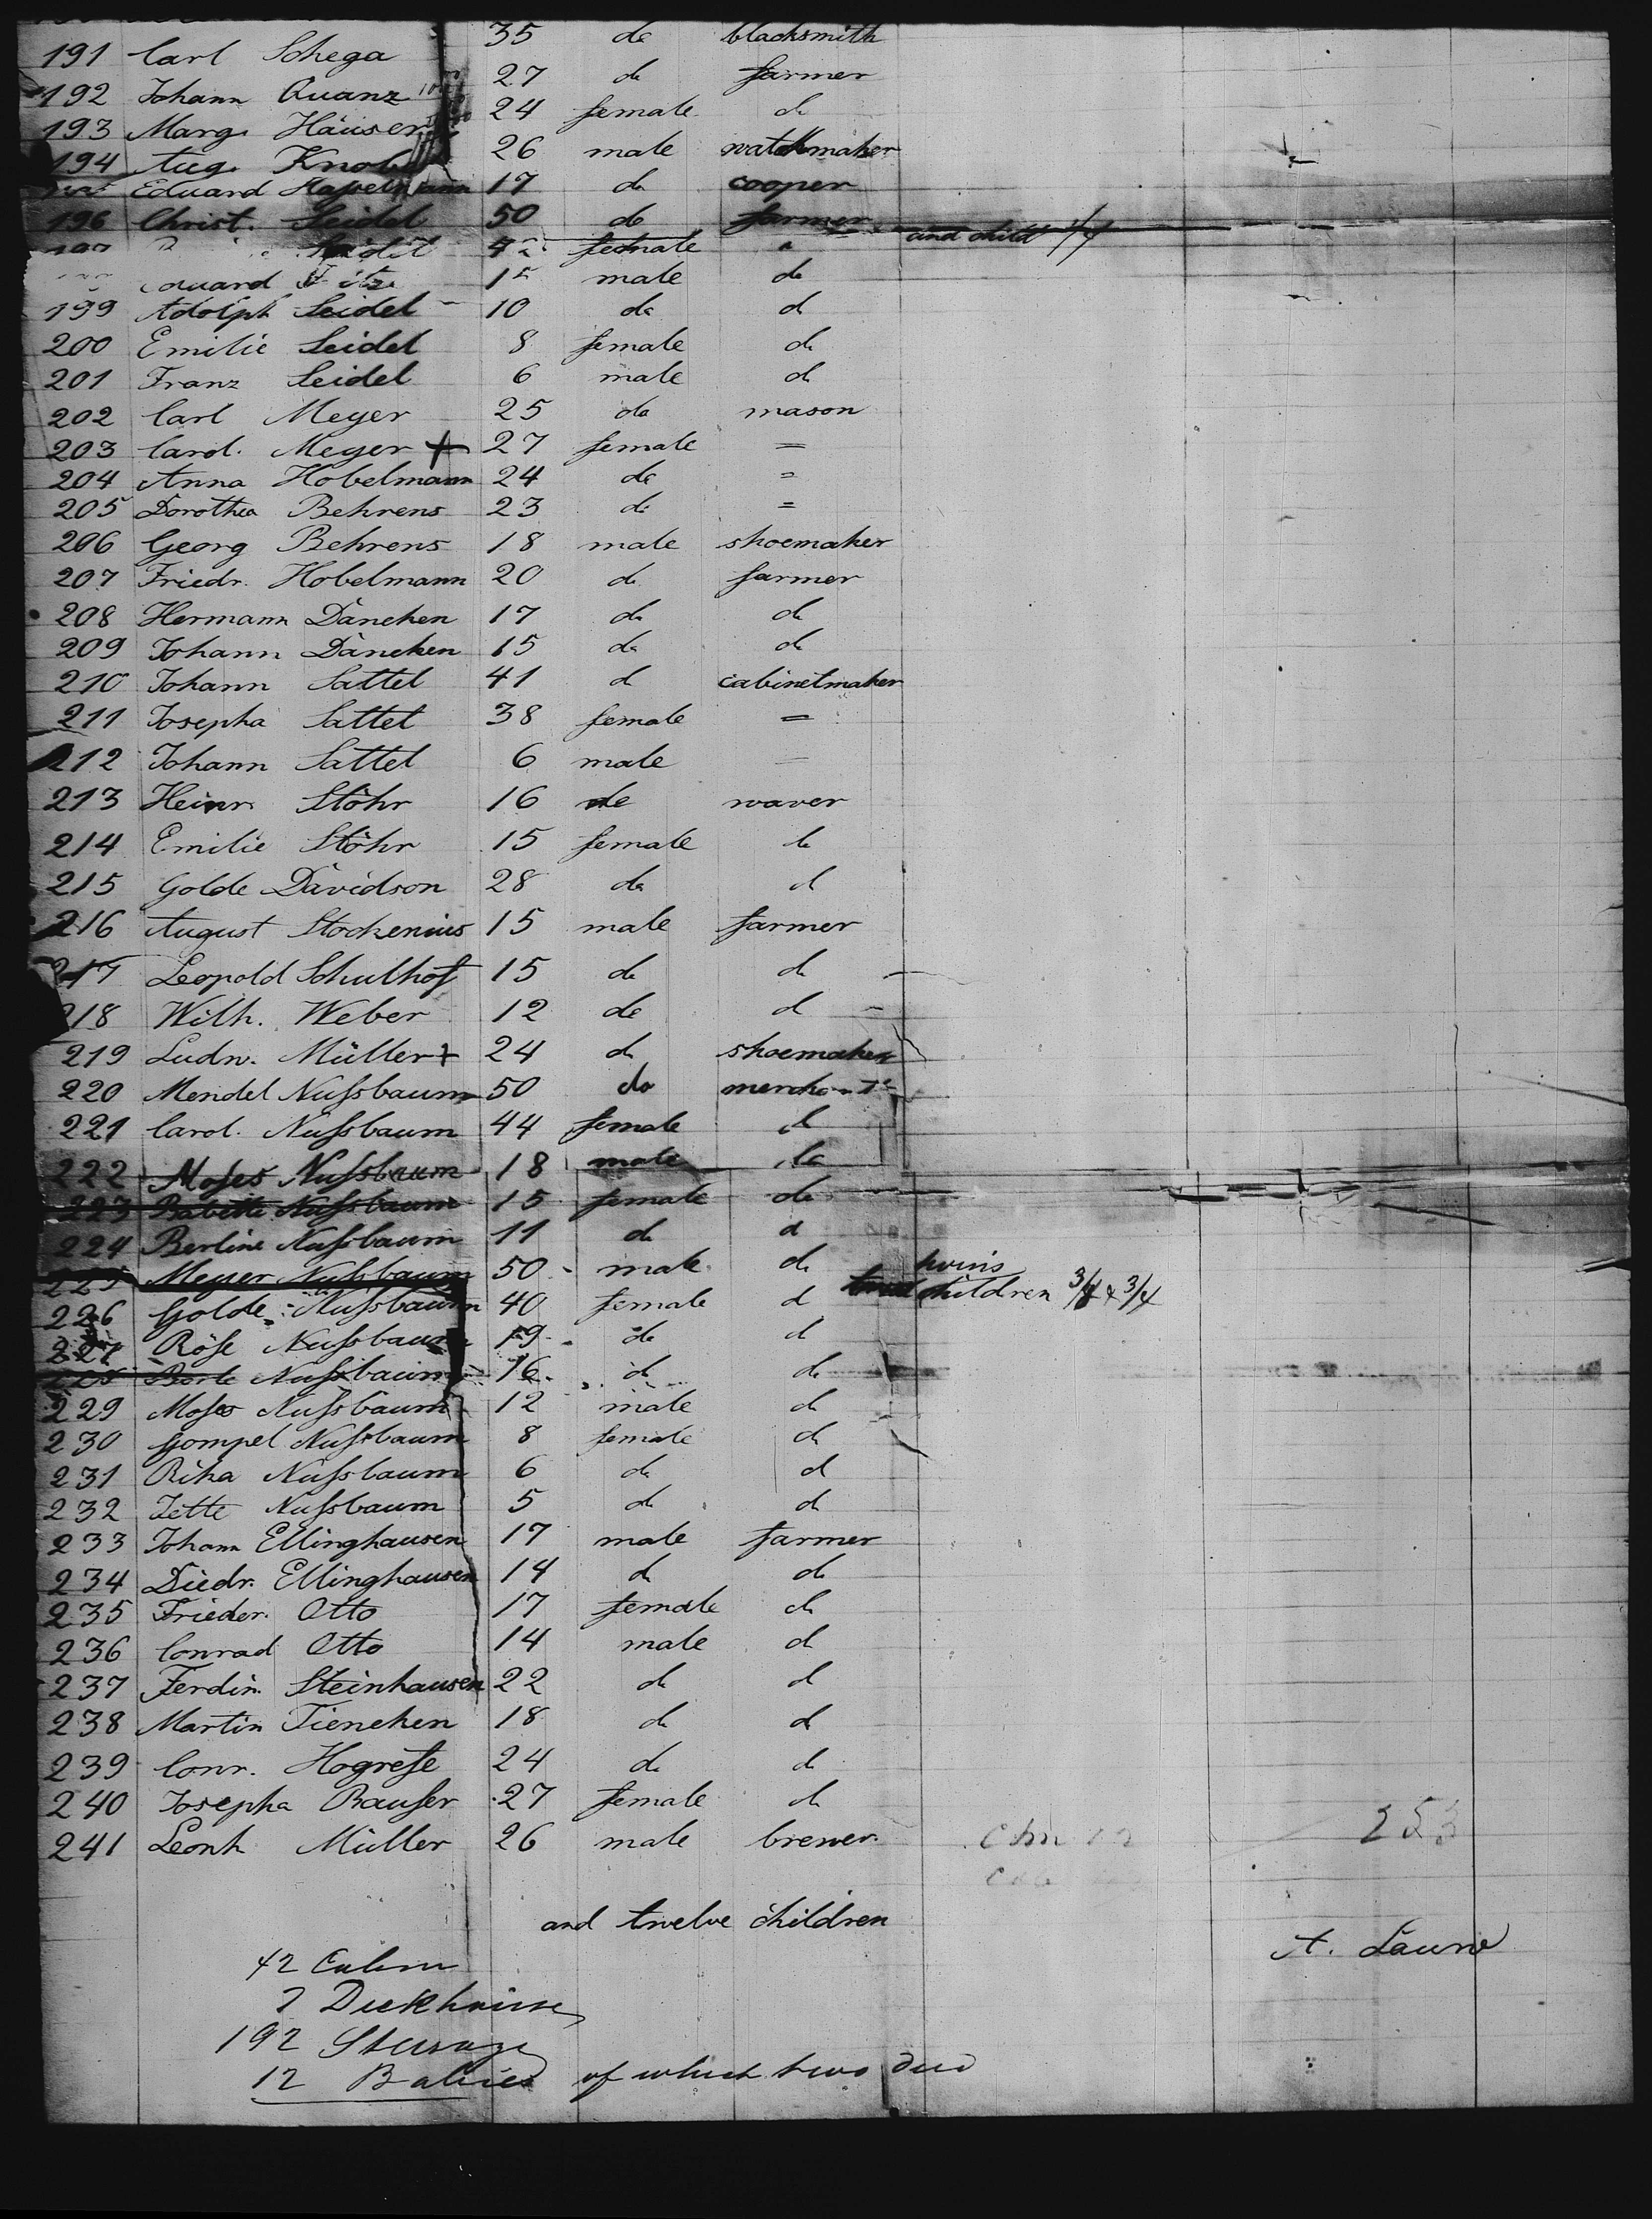 191 Carl Schega 35 do blacksmith
192 Johann Quanz 27 do farmer
193 Marg. Häuser 24 female do
194 Aug. Knobel 26 male watchmaker
Eduard Hasselmann 17 do cooper
196 Christ. Seidel 50 do farmer
Seidel female and child 1/4
Eduard male do
199 Adolph Seidel 10 do d
200 Emilie Seidel 8 female do
201 Franz Seidel 6 male do
202 Carl Meyer 25 do mason
203 Carol. Meyer + 27 female =
204 Anna Hobelmann 24 do =
205 Dorothea Behrens 23 do =
206 Georg Behrens 18 male shoemaker
207 Friedr. Hobelmann 20 do farmer
208 Hermann Däneken 17 do do
209 Johann Däneken 15 do do
210 Johann Sattel 41 d cabinetmaker
211 Josepha Sattel 38 female =
212 Johann Sattel 6 male —
213 Heinr. Stöhr 16 do waver
214 Emilie Stöhr 15 female do
215 Golde Davidson 28 do d
216 August Stockenius 15 male farmer
217 Leopold Schulhof 15 do do
218 Wilh. Weber 12 do d
219 Ludw. Müller + 24 do shoemaker
220 Mendel Nußbaum 50 do merchant
221 Carol. Nußbaum 44 female d
222 Moses Nußbaum 18 male do
223 Babette Nußbaum 15 female do
224 Berline Nußbaum 11 do d
225 Meyer Nußbaum 50 male do twins
226 Golde Nußbaum 40 female d children 3/4 & 3/4
227 Röse Nußbaum 19 do d
Nußbaum 16 d do
229 Moses Nußbaum 12 male d
230 Gompel Nußbaum 8 female do
231 Rika Nußbaum 6 do d
232 Jette Nußbaum 5 do d
233 Johann Ellinghausen 17 male farmer
234 Diedr. Ellinghausen 14 do do
235 Frieder. Otto 17 female do
236 Conrad Otto 14 male d
237 Ferdin. Steinhausen 22 do d
238 Martin Tieneken 18 do do
239 Conr. Hogrefe 24 do do
240 Josepha Baußer 27 female do
241 Leonh Müller 26 male brewer
253
and twelve children
A. Laurie
42 Cabin
7 Deckhouse
192 Steerage
12 Babies of which two died